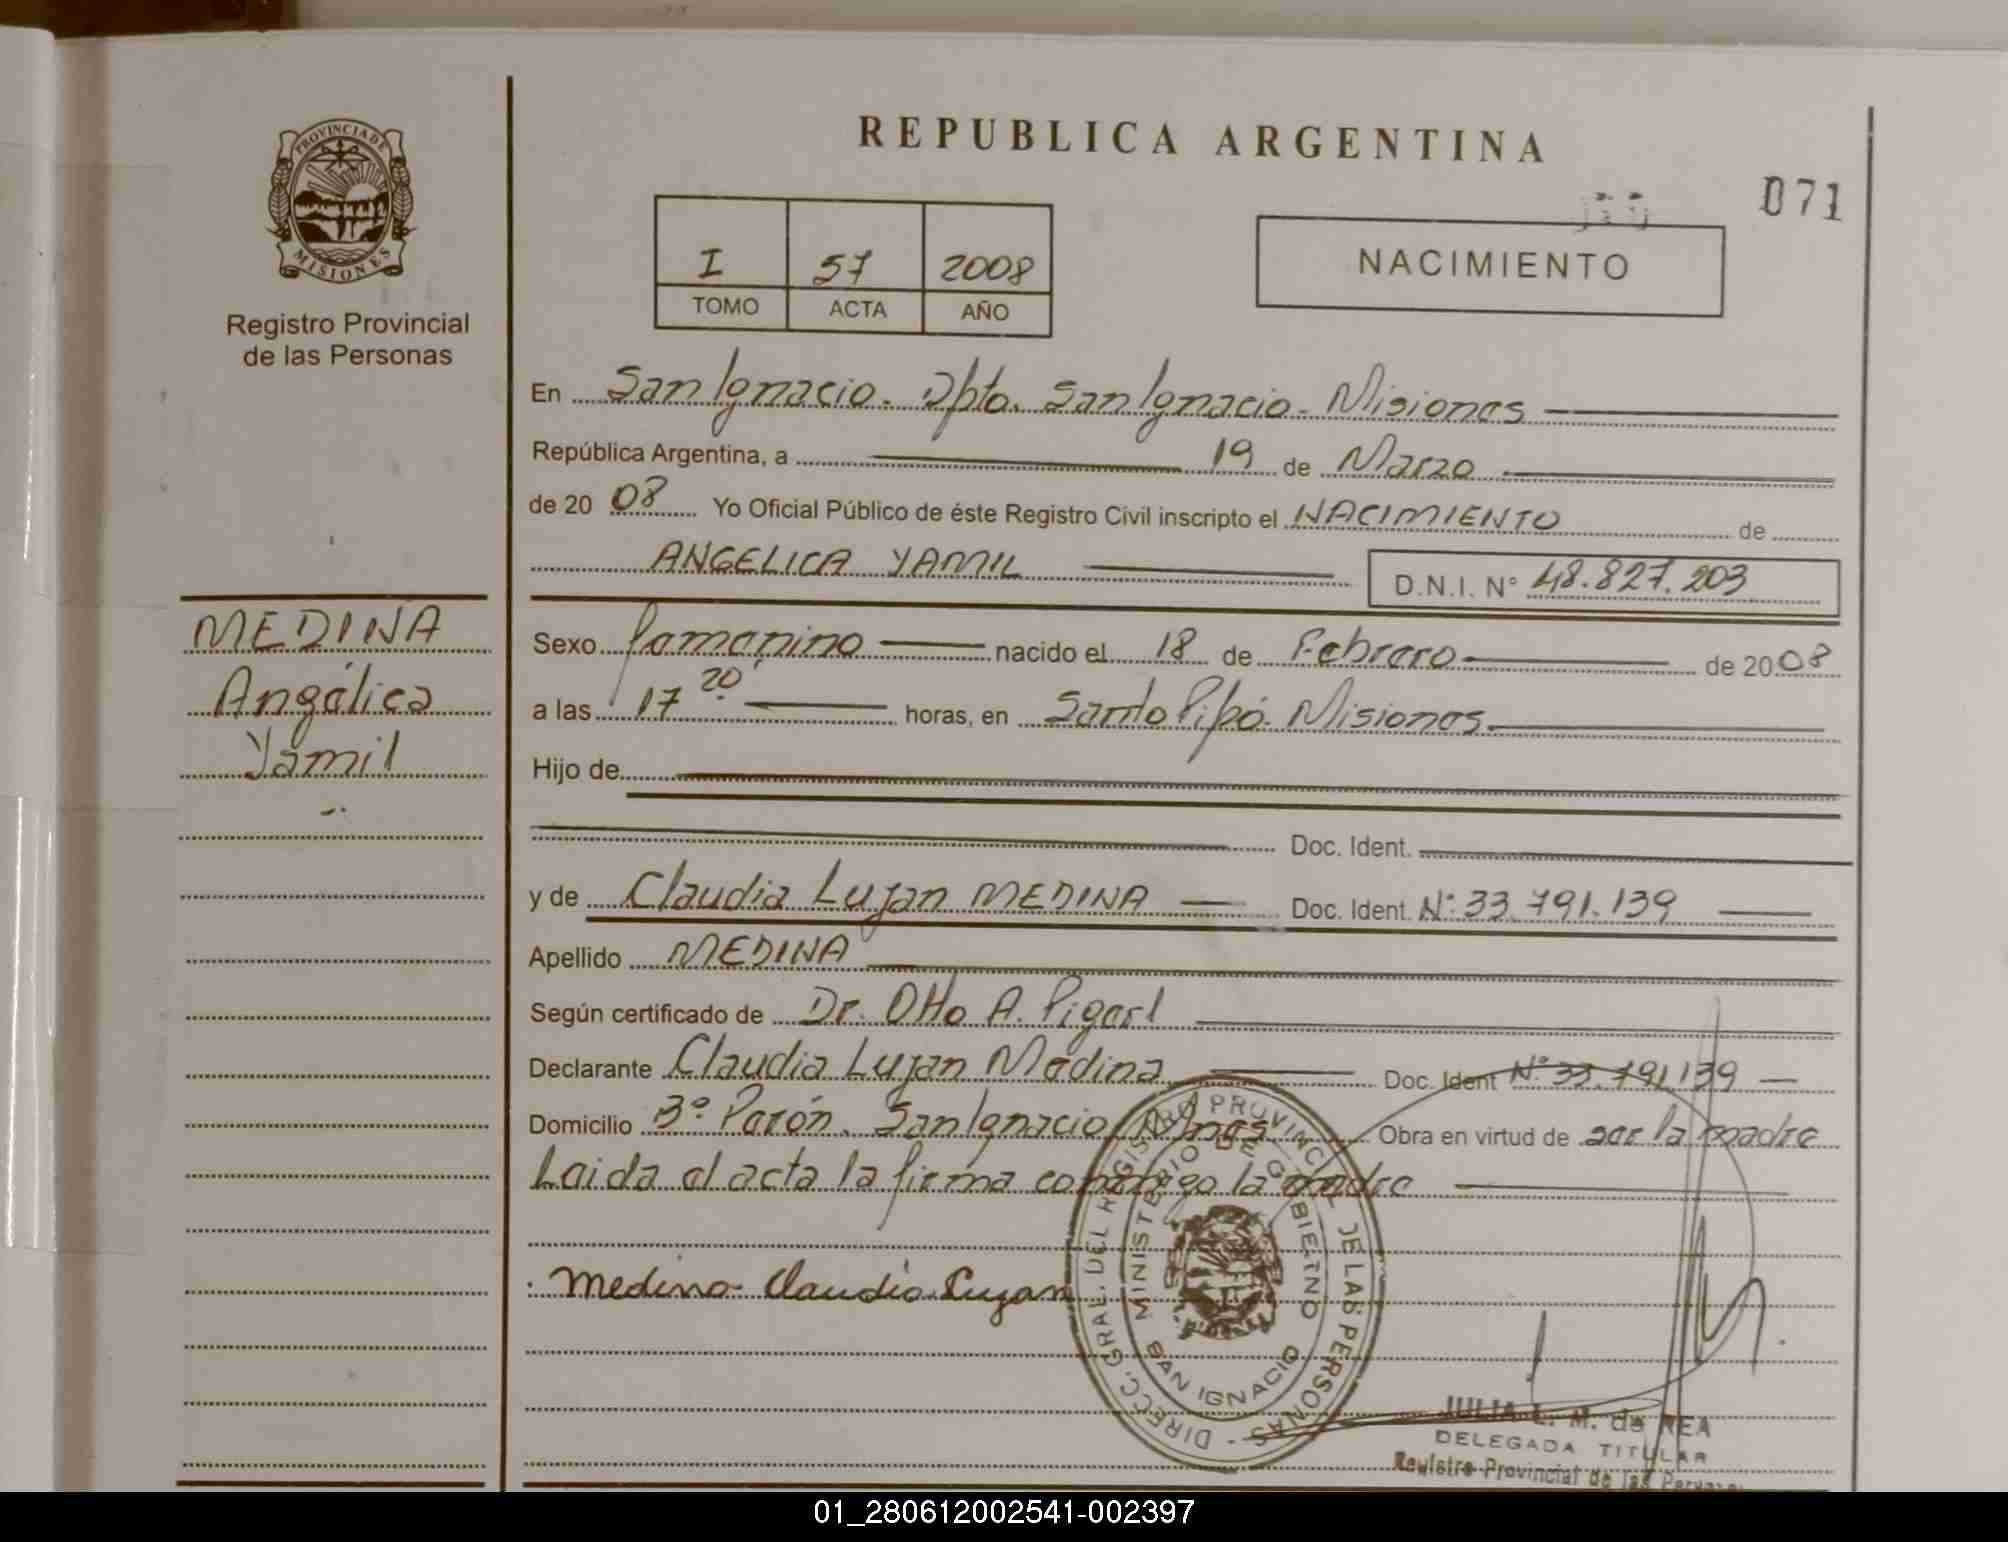 REPUBLICA ARGENTINA
071
PROVINCIA DE
MISIONES
Registro Provincial
de las Personas
I 57 2008
TOMO ACTA AÑO
NACIMIENTO
En San Ignacio. Dpto. San Ignacio. Misiones
República Argentina, a 19 de Marzo
de 20 08 Yo Oficial Público de éste Registro Civil inscripto el NACIMIENTO de
ANGELICA YAMIL D.N.I. N° 48.827.203
MEDINA
Angélica
Yamil
Sexo femenino nacido el 18 de Febrero de 20 08
a las 17 20' horas, en Santo Pipó. Misiones.
Hijo de
Doc. Ident.
y de Claudia Lujan MEDINA Doc. Ident. N° 33.791.139
Apellido MEDINA
Según certificado de Dr. Otto A.
Declarante Claudia Lujan Medina Doc. Ident N° 33.791.139
Domicilio 3° San Ignacio Mnes. Obra en virtud de ser la madre
Leida el acta la firma conmigo la madre
Medina Claudia Lujan
DIRECC. GRAL. DEL REGISTRO PROVINCIAL DE LAS PERSONAS
MINISTERIO DE GOBIERNO
SAN IGNACIO
JULIA L. M. de REA
DELEGADA TITULAR
Registro Provincial de las
01_280612002541-002397